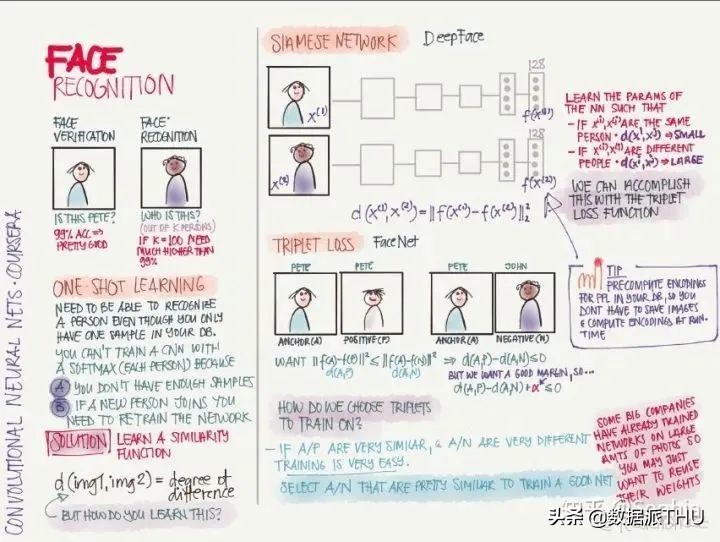 FACE
RECOGNITION
FACE
VERIFICATION
IS THIS PETE?
99% ACC ⇒
PRETTY GOOD
FACE
RECOGNITION
WHO IS THIS?
(OUT OF K PERSONS)
IF K=100 NEED
MUCH HIGHER THAN
99%
ONE-SHOT LEARNING
NEED TO BE ABLE TO RECOGNIZE
A PERSON EVEN THOUGH YOU ONLY
HAVE ONE SAMPLE IN YOUR DB.
YOU CAN'T TRAIN A CNN WITH
A SOFTMAX (EACH PERSON) BECAUSE
A YOU DON'T HAVE ENOUGH SAMPLES
B IF A NEW PERSON JOINS YOU
NEED TO RETRAIN THE NETWORK
SOLUTION LEARN A SIMILARITY
FUNCTION
d(img1, img2) = degree of
difference
BUT HOW DO YOU LEARN THIS?
CONVOLUTIONAL NEURAL NETS · COURSERA
SIAMESE NETWORK DeepFace
128
x⁽¹⁾
f(x⁽¹⁾)
128
x⁽²⁾
f(x⁽²⁾)
d(x⁽¹⁾, x⁽²⁾) = ‖f(x⁽¹⁾) - f(x⁽²⁾)‖²₂
LEARN THE PARAMS OF
THE NN SUCH THAT
- IF x⁽ⁱ⁾, x⁽ʲ⁾ ARE THE SAME
PERSON · d(xⁱ, xʲ) ⇒ SMALL
- IF x⁽ⁱ⁾, x⁽ʲ⁾ ARE DIFFERENT
PEOPLE · d(xⁱ, xʲ) ⇒ LARGE
WE CAN ACCOMPLISH
THIS WITH THE TRIPLET
LOSS FUNCTION
TIP
PRECOMPUTE ENCODINGS
FOR PPL IN YOUR DB, SO YOU
DONT HAVE TO SAVE IMAGES
& COMPUTE ENCODINGS AT RUN-
TIME
TRIPLET LOSS FaceNet
PETE PETE PETE JOHN
ANCHOR(A) POSITIVE(P) ANCHOR(A) NEGATIVE(N)
WANT ‖f(A)-f(P)‖² ≤ ‖f(A)-f(N)‖² ⇒ d(A,P)-d(A,N) ≤ 0
d(A,P) d(A,N) BUT WE WANT A GOOD MARGIN, SO...
d(A,P)-d(A,N)+α ≤ 0
HOW DO WE CHOOSE TRIPLETS
TO TRAIN ON?
- IF A/P ARE VERY SIMILAR, & A/N ARE VERY DIFFERENT
TRAINING IS VERY EASY.
SELECT A/N THAT ARE PRETTY SIMILAR TO TRAIN A GOOD NET
SOME BIG COMPANIES
HAVE ALREADY TRAINED
NETWORKS ON LARGE
AMTS OF PHOTOS SO
YOU MAY JUST
WANT TO REUSE
THEIR WEIGHTS
头条 @数据派THU